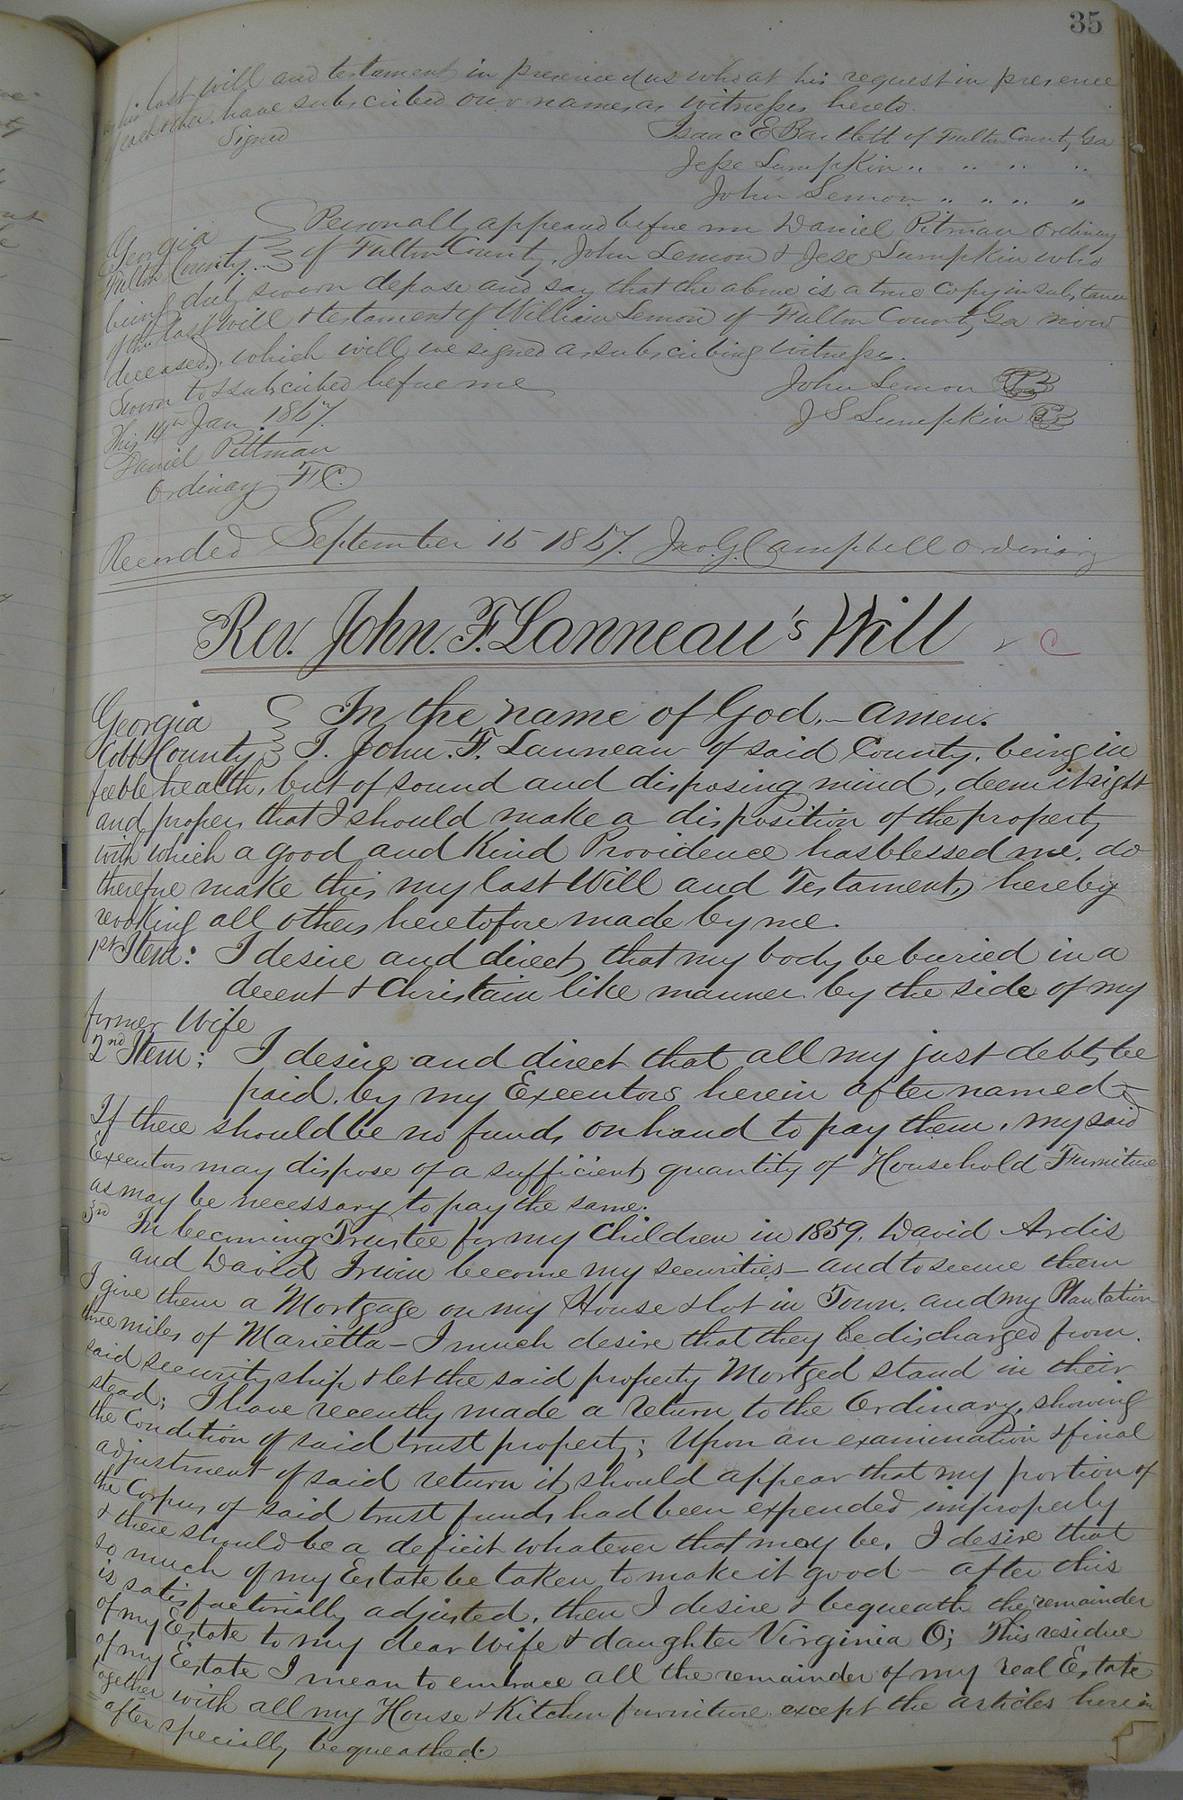 35
as his last will and testament in presence of us who at his request in presence
of each other have subscribed our names as witnesses hereto.
Signed
Isaac E Bartlett of Fulton County Ga
Jesse Lumpkin " " " "
John Lemon " " " "
Georgia } Personally appeared before me Daniel Pitman Ordinary
Fulton County } of Fulton County, John Lemon & Jesse Lumpkin who
being duly sworn depose and say that the above is a true copy in substance
of the last will & testament of William Lemon of Fulton County Ga now
deceased, which will we signed as subscribing witnesses.
Sworn to & subscribed before me
John Lemon
This 14th Jan 1867.
J S Lumpkin
Daniel Pittman
Ordinary F.C.
Recorded September 16 1867. Jno. G. Campbell Ordinary
Rev. John. F. Lanneau's Will
C
Georgia } In the name of God,– Amen.
Cobb County } I. John. F. Lanneau of said County, being in
feeble health, but of sound and disposing mind, deem it right
and proper, that I should make a disposition of the property
with which a good and Kind Providence has blessed me. do
therefore make this, my last Will and Testament, hereby
revoking all others heretofore made by me.
1st Item: I desire and direct, that my body be buried in a
decent & Christain like manner by the side of my
former Wife
2nd Item: I desire and direct that all my just debts be
paid, by my Executors herein after named–
If there should be no funds on hand to pay them, my said
Executors may dispose of a sufficient quantity of Household Furniture
as may be necessary to pay the same.
3rd In becoming Trustee for my Children in 1859. David Ardis
and David Irwin become my securities – and to secure them
I give them a Mortgage on my House & lot in Town. and my Plantation
three miles of Marietta – I much desire that they be discharged from.
said securityship & let the said property Mortged stand in their
stead; I have recently made a return to the Ordinary, showing
the Condition of said trust property; Upon an examination & final
adjustment of said return it should appear that my portion of
the Corpus of said trust funds had been expended improperly
& there should be a deficit whatever that may be, I desire that
so much of my Estate be taken to make it good – after this
is satisfactorially adjusted, then I desire & bequeath the remainder
of my Estate to my dear Wife & daughter Virginia O; This residue
of my Estate I mean to embrace all the remainder of my real Estate
together with all my House & Kitchen furniture except the articles herein
= after specially bequeathed.